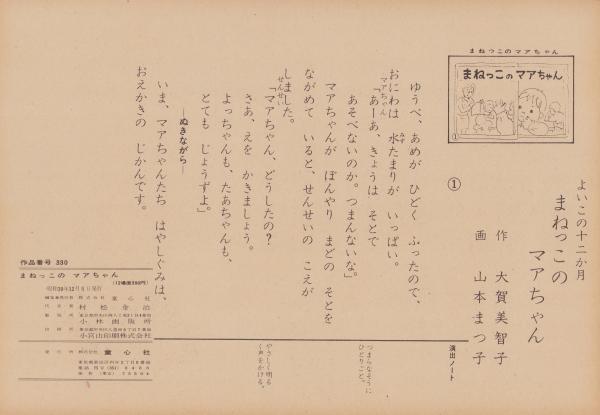 まねっこのマアちゃん
まねっこの マアちゃん
①
よいこの十二か月
まねっこの
マアちゃん
作 大賀美智子
画 山本まつ子
①
ゆうべ、あめが ひどく ふったので、
おにわは 水たまりが いっぱい。
みず
マアちゃん
「あーあ、きょうは そとで
あそべないのか。つまんないな。」
マアちゃんが ぼんやり まどの そとを
ながめて いると、せんせいの こえが
しました。
せんせい
「マアちゃん、どうしたの?
さあ、えを かきましょう。
よっちゃんも、たあちゃんも、
とても じょうずよ」
―ぬきながら―
いま、マアちゃんたち はやしぐみは、
おえかきの じかんです。
演出ノート
つまらなそうに
ひとりごと。
やさしく明るく
声をかける。
作品番号 380
まねっこの マアちゃん
(12場面380円)
昭和39年12月1日発行
編集兼発行者 株式会社 童心社
代表者 村松金治
製版所 小林画版所
印刷所 小宮山印刷株式会社
発行所 株式会社 童心社